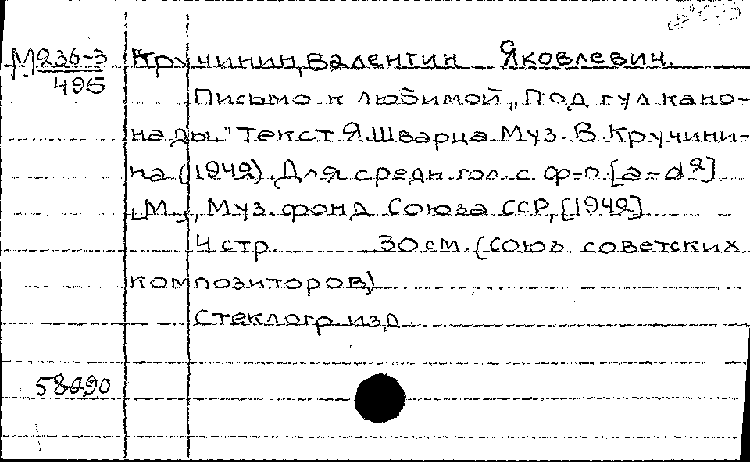 М236-3 Кручинин, Валентин Яковлевич.
495
Письмо к любимой „Под гул кано-
нады." Текст Я. Шварца Муз. В. Кручини-
на (1942). Для средн. гол. с ф-п. [a-d²]
М., Муз. фонд Союза ССР, [1942]
4 стр. 30 см. (Союз советских
композиторов)
Стеклогр. изд.